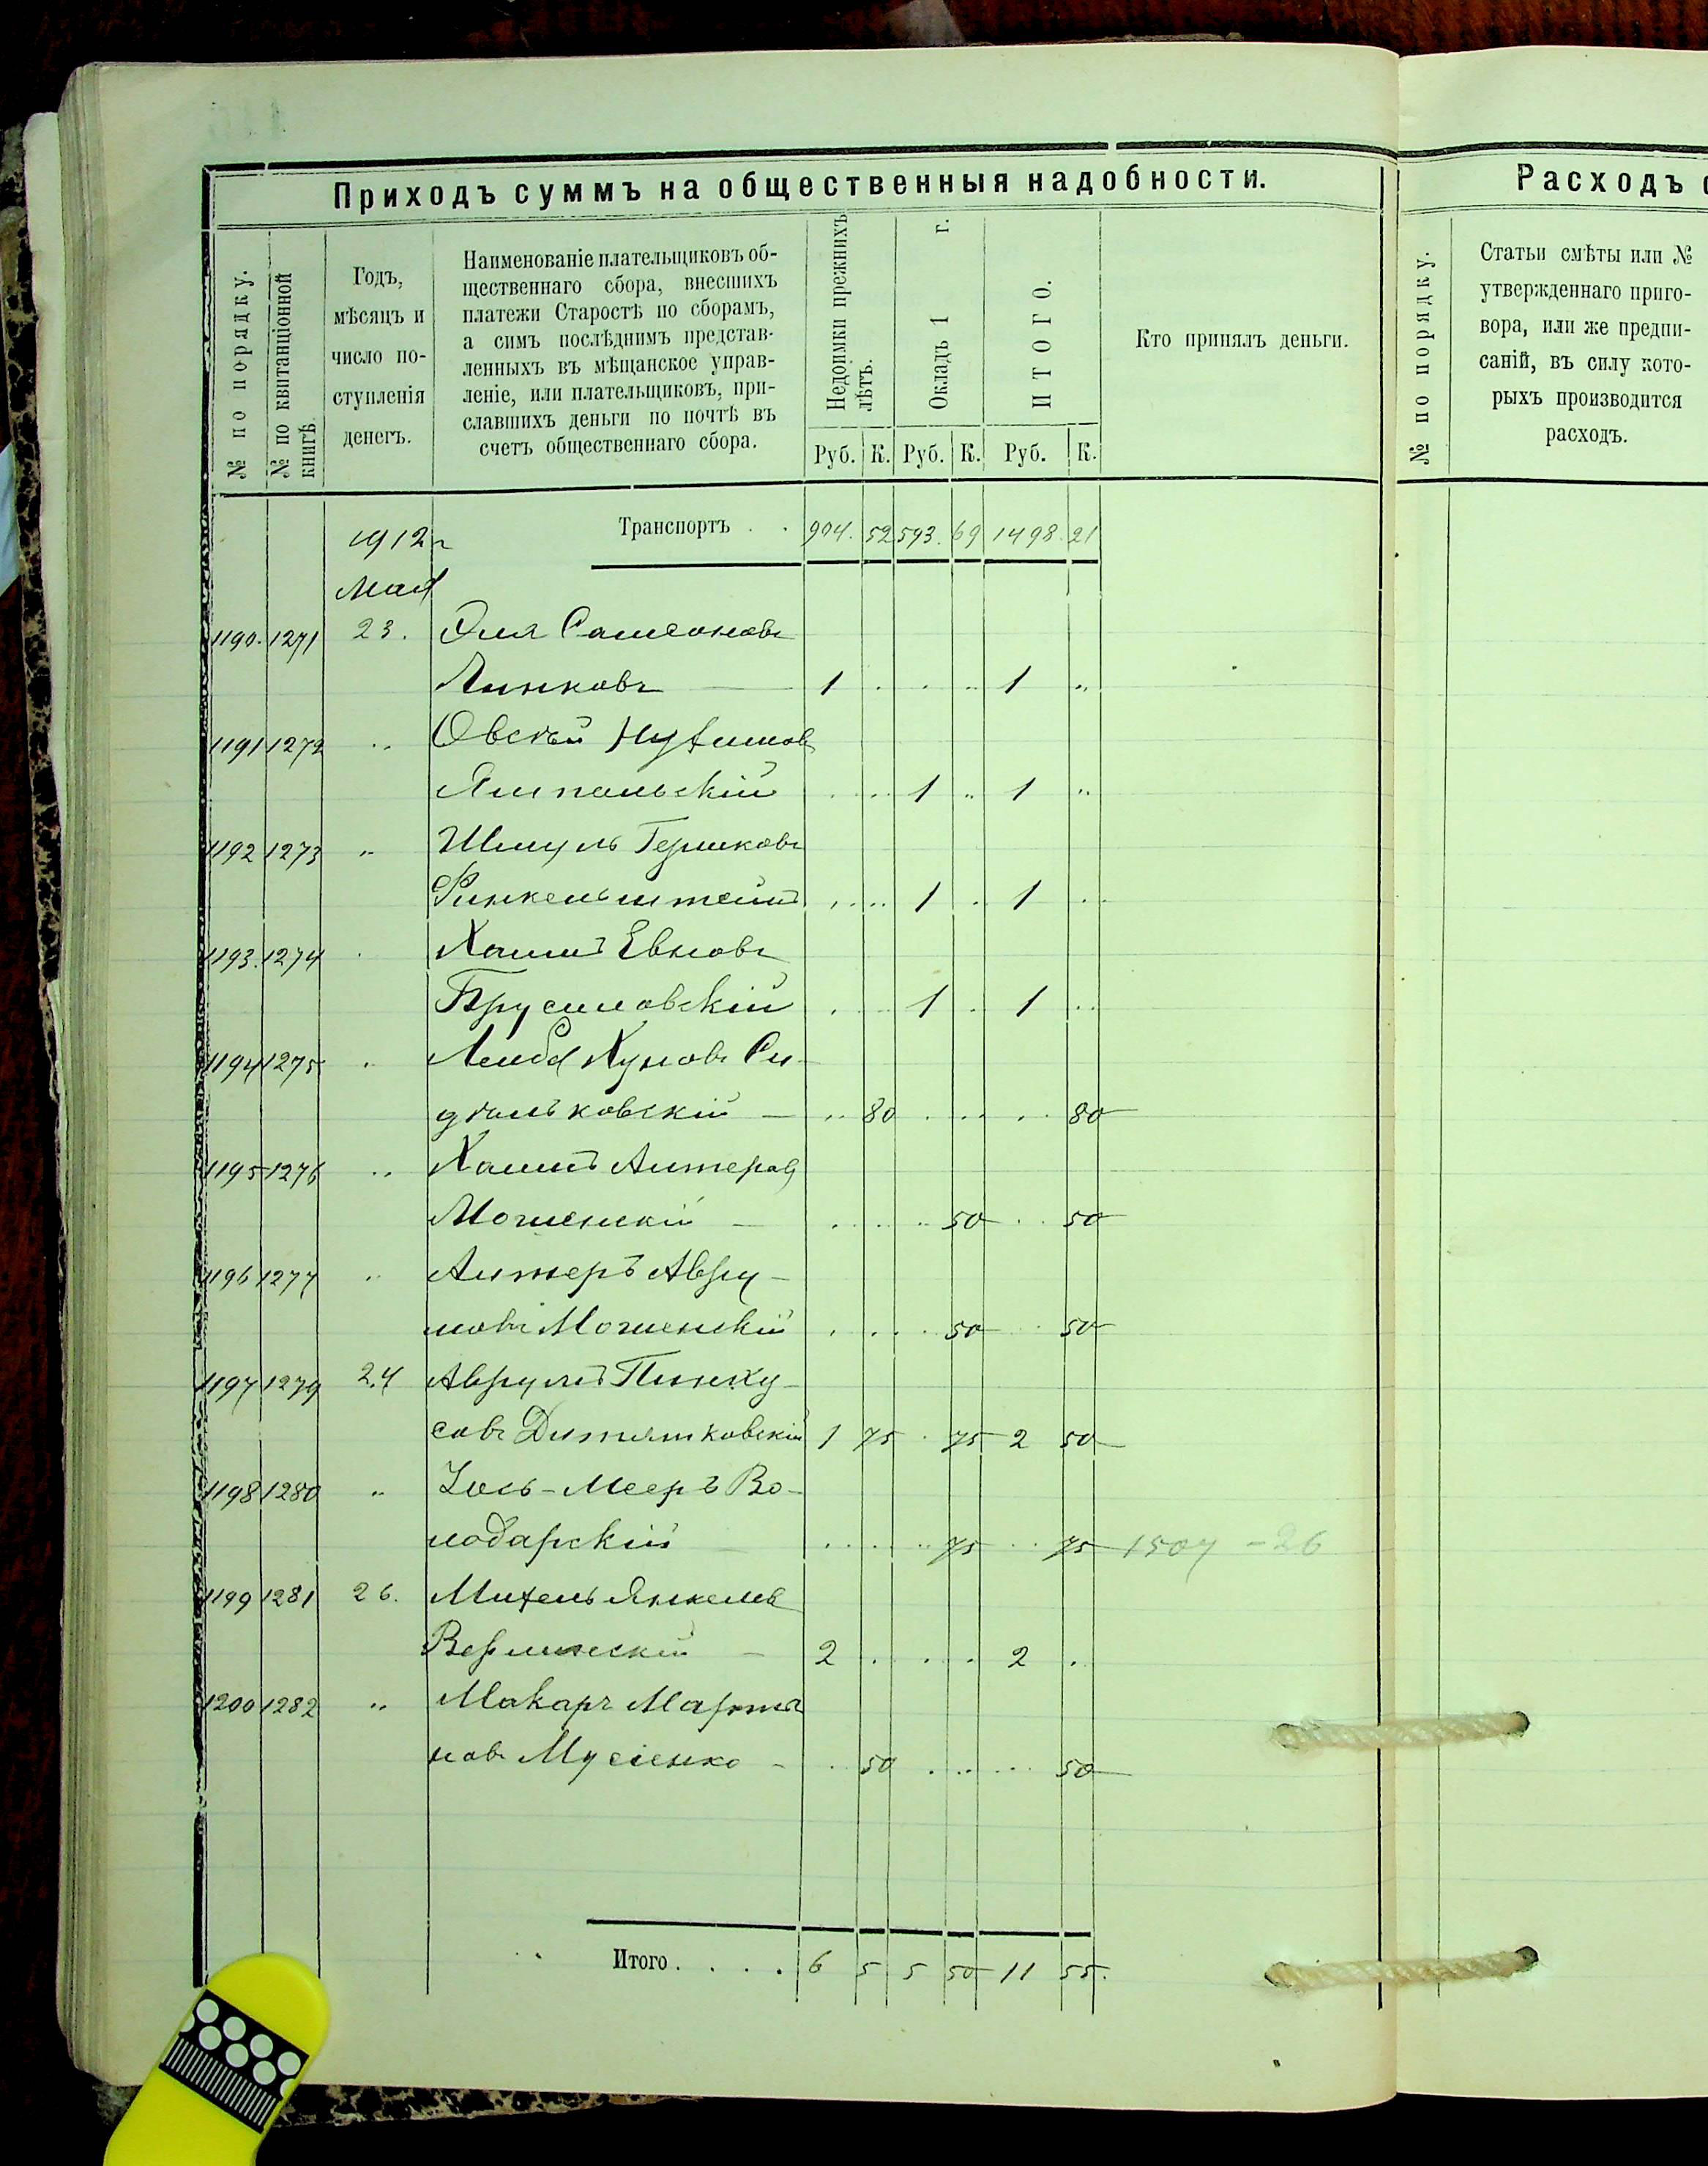 Приходъ суммъ на общественныя надобности.
№ по порядку.
№ по квитанціонной книгѣ.
Годъ, мѣсяцъ и число поступленія денегъ.
Наименованіе плательщиковъ об-
щественнаго сбора, внесшихъ
платежи Старостѣ по сборамъ,
а симъ послѣднимъ представ-
ленныхъ въ мѣщанское управ-
леніе, или плательщиковъ, при-
славшихъ деньги по почтѣ въ
счетъ общественнаго сбора.
Недоимки прежнихъ лѣтъ.
Окладъ 1 г.
ИТОГО.
Кто принялъ деньги.
Руб. К. Руб. К. Руб. К.
1912 г Транспортъ . . 904. 52 593. 69 1498. 21
Мая
1190. 1271 23. Эля Самсоновъ
Линковъ — 1 . . .. 1 ..
1191 1272 .. Овсѣй Нухимов
Ямпольскій . ... 1 .. 1 ..
1192 1273 .. Шмуль Гершковъ
Финкельштейнъ . ... 1 . 1 ..
1193. 1274 . Хаимъ Евновъ
Брусиловскій . ... 1 . 1 ..
1194 1275 .. Лейба Хуновъ Си-
дѣльковскій — .. 80 . ... .. 80
1195 1276 .. Хаимъ Антеров
Мошенскій — . ... .. 50 .. 50
1196 1277 .. Аншеръ Авру-
мовъ Мошенскій . . . . 50 .. 50
1197 1279 24 Аврумъ Пинку-
совъ Дитятковскій 1 75 . 75 2 50
1198 1280 .. Іось-Мееръ Во-
лодарскій . ... .. 75 .. 75 1507 - 26
1199 1281 26. Михель Янкелев
Верлинскій — 2 . . . 2 .
1200 1282 .. Макаръ Марты
новъ Мусіенко - . 50 . .. ... 50
Итого . . . . 6 5 5 50 11 55.
Расходъ
№ по порядку.
Статьи смѣты или №
утвержденнаго приго-
вора, или же предпи-
саній, въ силу кото-
рыхъ производится
расходъ.